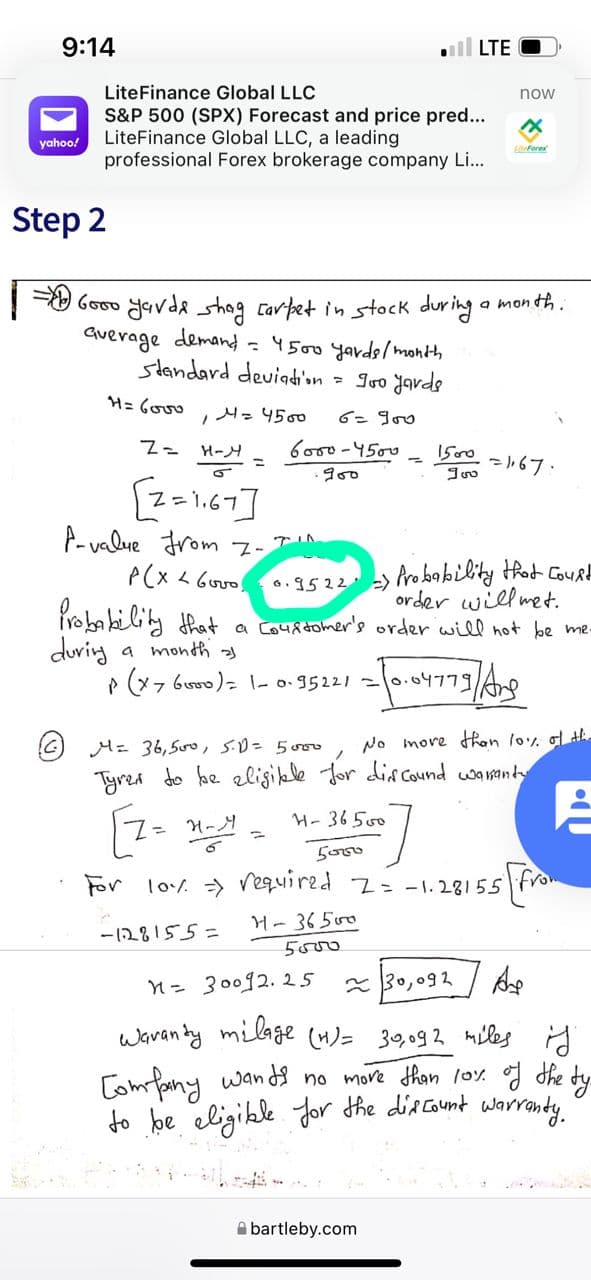 9:14
LTE
LiteFinance Global LLC
now
S&P 500 (SPX) Forecast and price pred...
LiteFinance Global LLC, a leading
professional Forex brokerage company Li...
yahoo!
LiteForex
Step 2
⇒ b 6000 yards shag carpet in stock during a month.
average demand = 4500 yards/month
standard deviation = 900 yards
x = 6000, μ = 4500 σ = 900
Z = x-μ/σ = 6000-4500/900 = 1500/900 = 1.67.
[Z = 1.67]
P-value from Z-
P(x < 6000) 0.9522 ⇒ Probability that
order will met.
Probability that a Coustomer's order will not be me
during a month ⇒
P(x > 6000) = 1 - 0.95221 = 0.04779 Ans
C μ = 36,500, S.D = 5000, No more than 10% of the
Tyres to be eligible for discound warranty
[Z = x-μ/σ = x-36500/5000]
For 10% ⇒ required Z = -1.28155 [from
-1.28155 = x-36500/5000
x = 30092.25 ≈ 30,092 Ans
Waranty milage (x) = 30,092 miles if
Company wands no more than 10% of the ty
to be eligible for the discount warranty.
bartleby.com